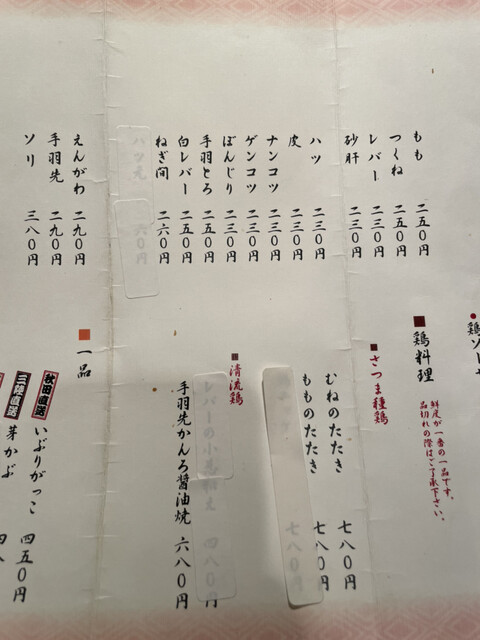 もも 二五〇円
つくね 二五〇円
レバー 二三〇円
砂肝 二三〇円
ハツ 二三〇円
皮 二三〇円
ナンコツ 二三〇円
ゲンコツ 二三〇円
ぼんじり 二三〇円
手羽とろ 二五〇円
白レバー 二五〇円
ねぎ間 二六〇円
ハツ元 二六〇円
えんがわ 二九〇円
手羽先 二九〇円
ソリ 三八〇円
鶏ソ
鶏料理
鮮度が一番の一品です。
品切れの際はご了承下さい。
さつま種鶏
むねのたたき 七八〇円
もものたたき 七八〇円
七八〇円
清流鶏
レバーの小
え 四八〇円
手羽先かんろ醤油焼 六八〇円
一品
秋田直送 いぶりがっこ 四五〇円
三陸直送 芽かぶ 四八